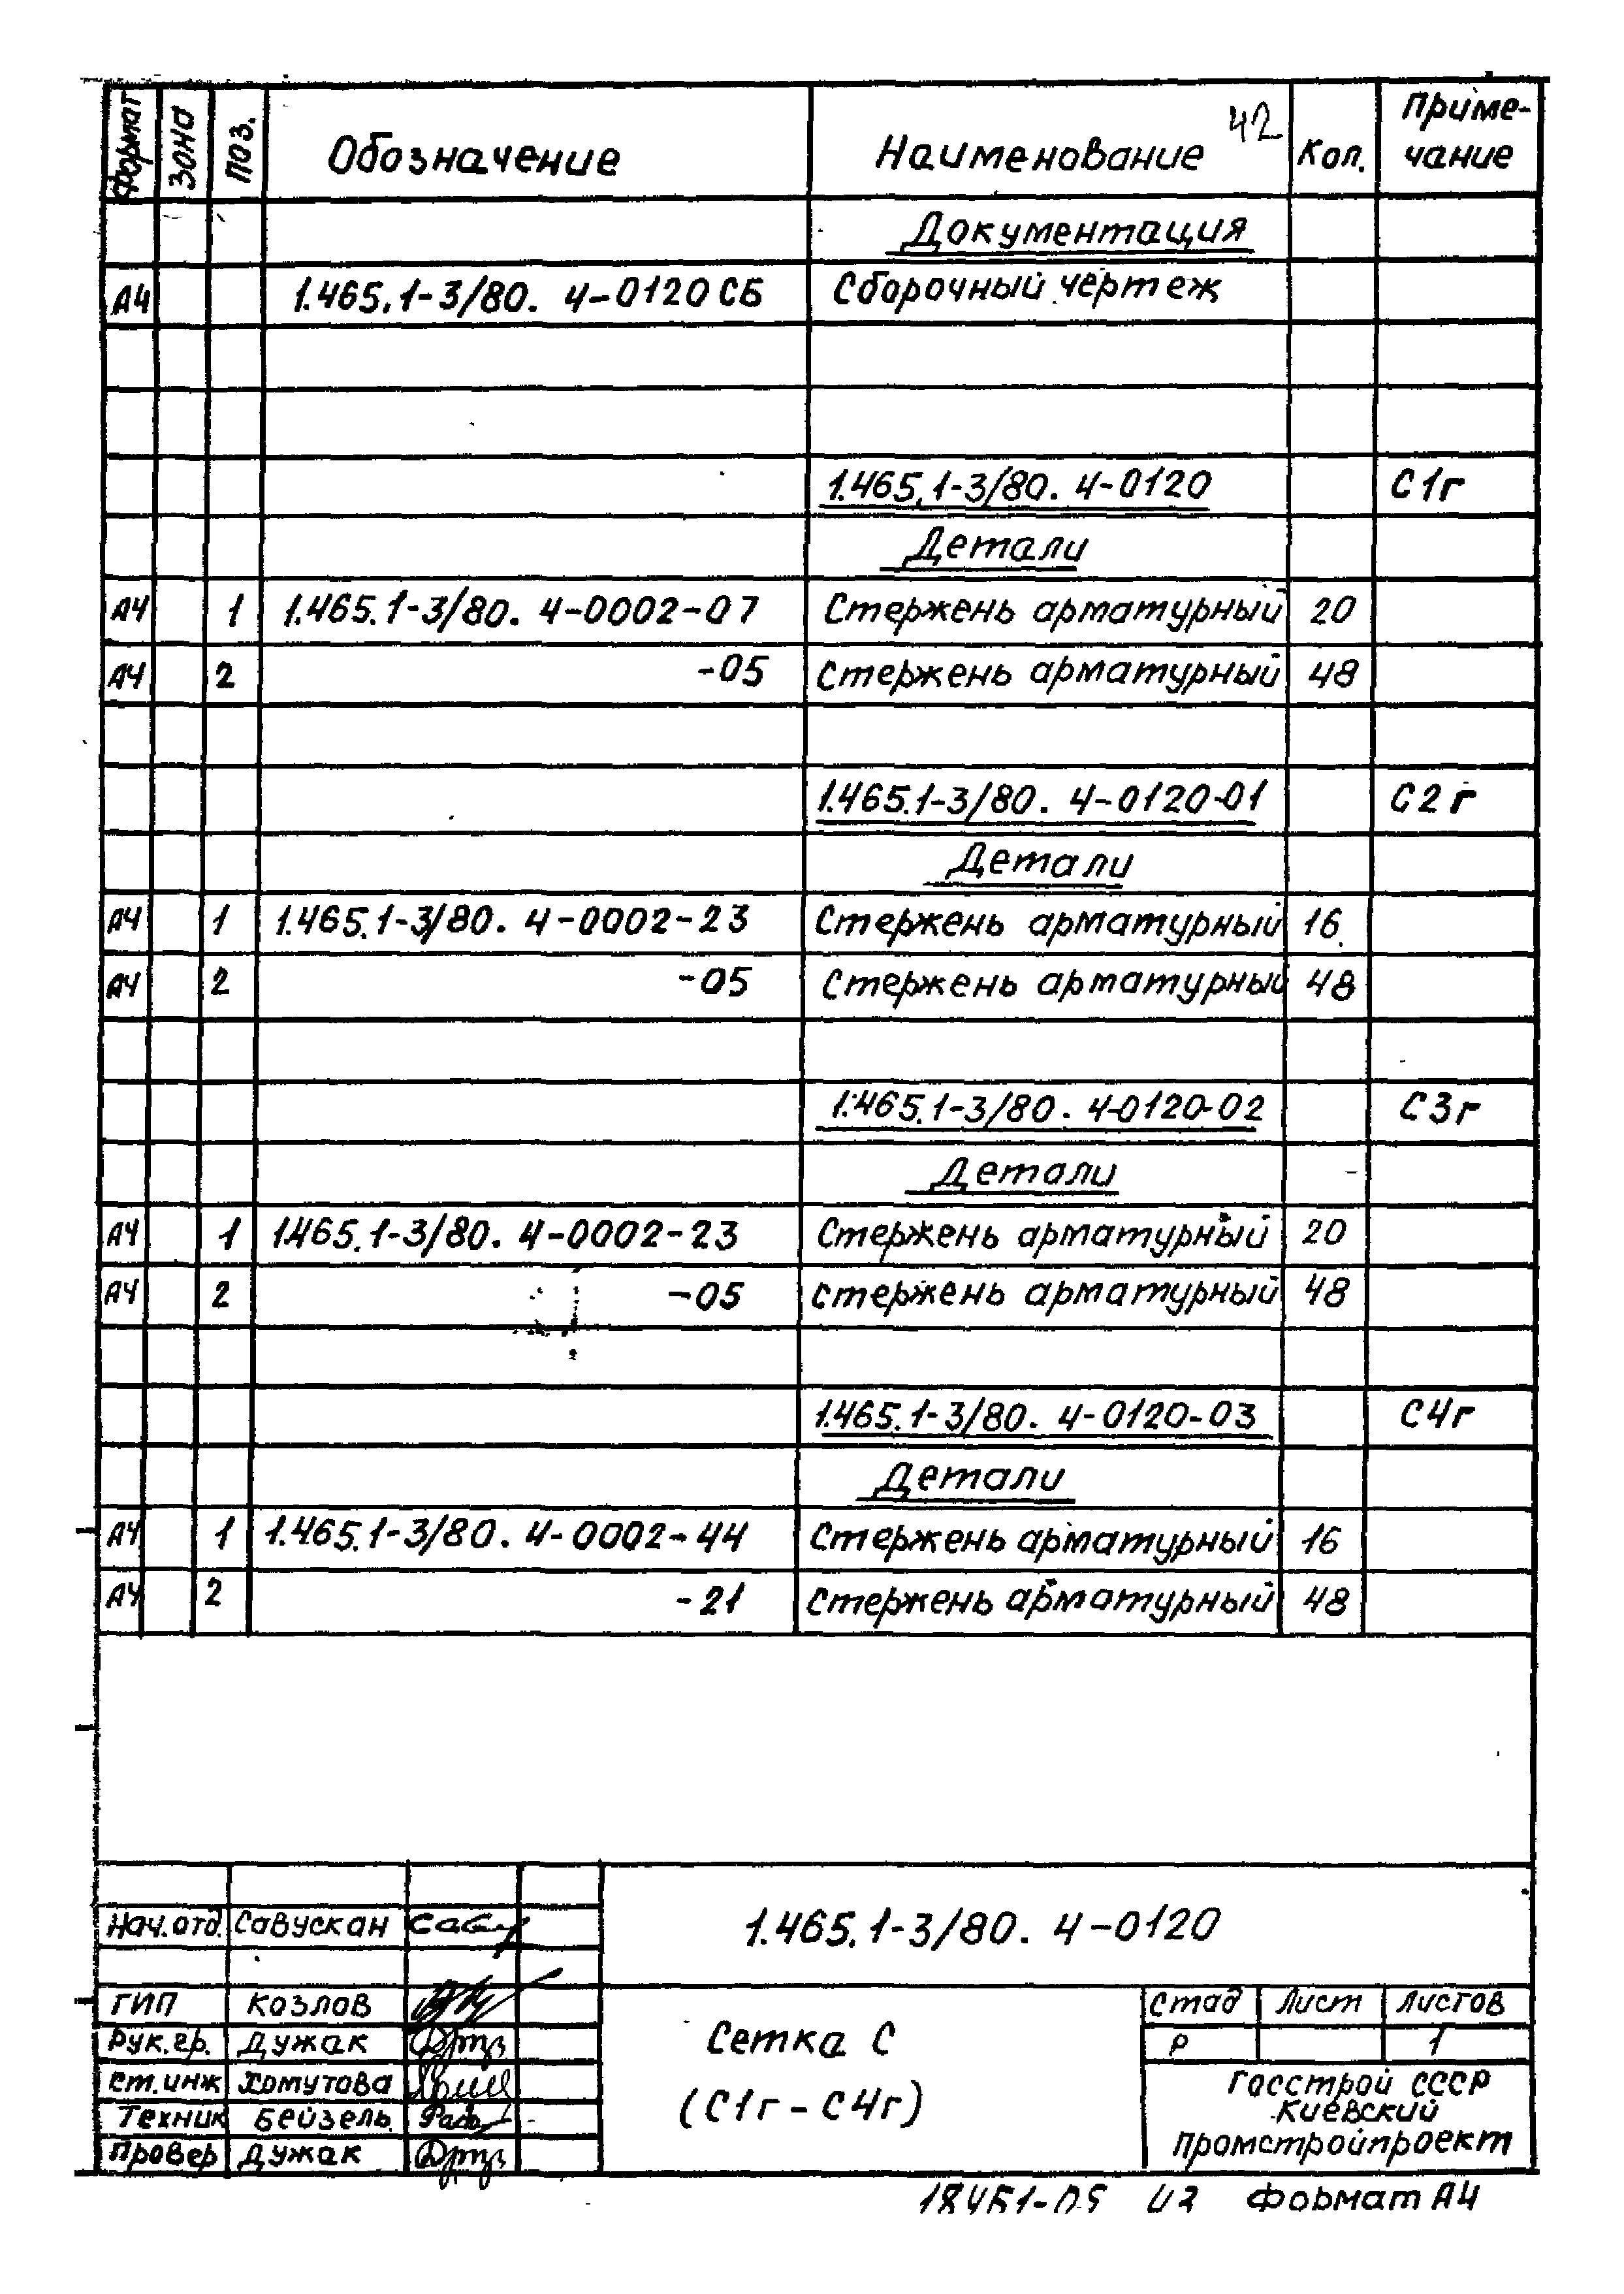 42
Формат Зона Поз. Обозначение Наименование Кол. Приме-
чание
Документация
А4 1.465.1-3/80. 4-0120 СБ Сборочный чертеж
1.465.1-3/80. 4-0120 С1г
Детали
А4 1 1.465.1-3/80. 4-0002-07 Стержень арматурный 20
А4 2 -05 Стержень арматурный 48
1.465.1-3/80. 4-0120-01 С2г
Детали
А4 1 1.465.1-3/80. 4-0002-23 Стержень арматурный 16
А4 2 -05 Стержень арматурный 48
1.465.1-3/80. 4-0120-02 С3г
Детали
А4 1 1.465.1-3/80. 4-0002-23 Стержень арматурный 20
А4 2 -05 стержень арматурный 48
1.465.1-3/80. 4-0120-03 С4г
Детали
А4 1 1.465.1-3/80. 4-0002-44 Стержень арматурный 16
А4 2 -21 Стержень арматурный 48
Нач.отд. Савускан
1.465.1-3/80. 4-0120
ГИП Козлов
Рук.гр. Дужак
Ст.инж Хомутова
Техник Бейзель
Провер Дужак
Сетка С
(С1г - С4г)
Стад Лист Листов
Р 1
Госстрой СССР
Киевский
Промстройпроект
Формат А4